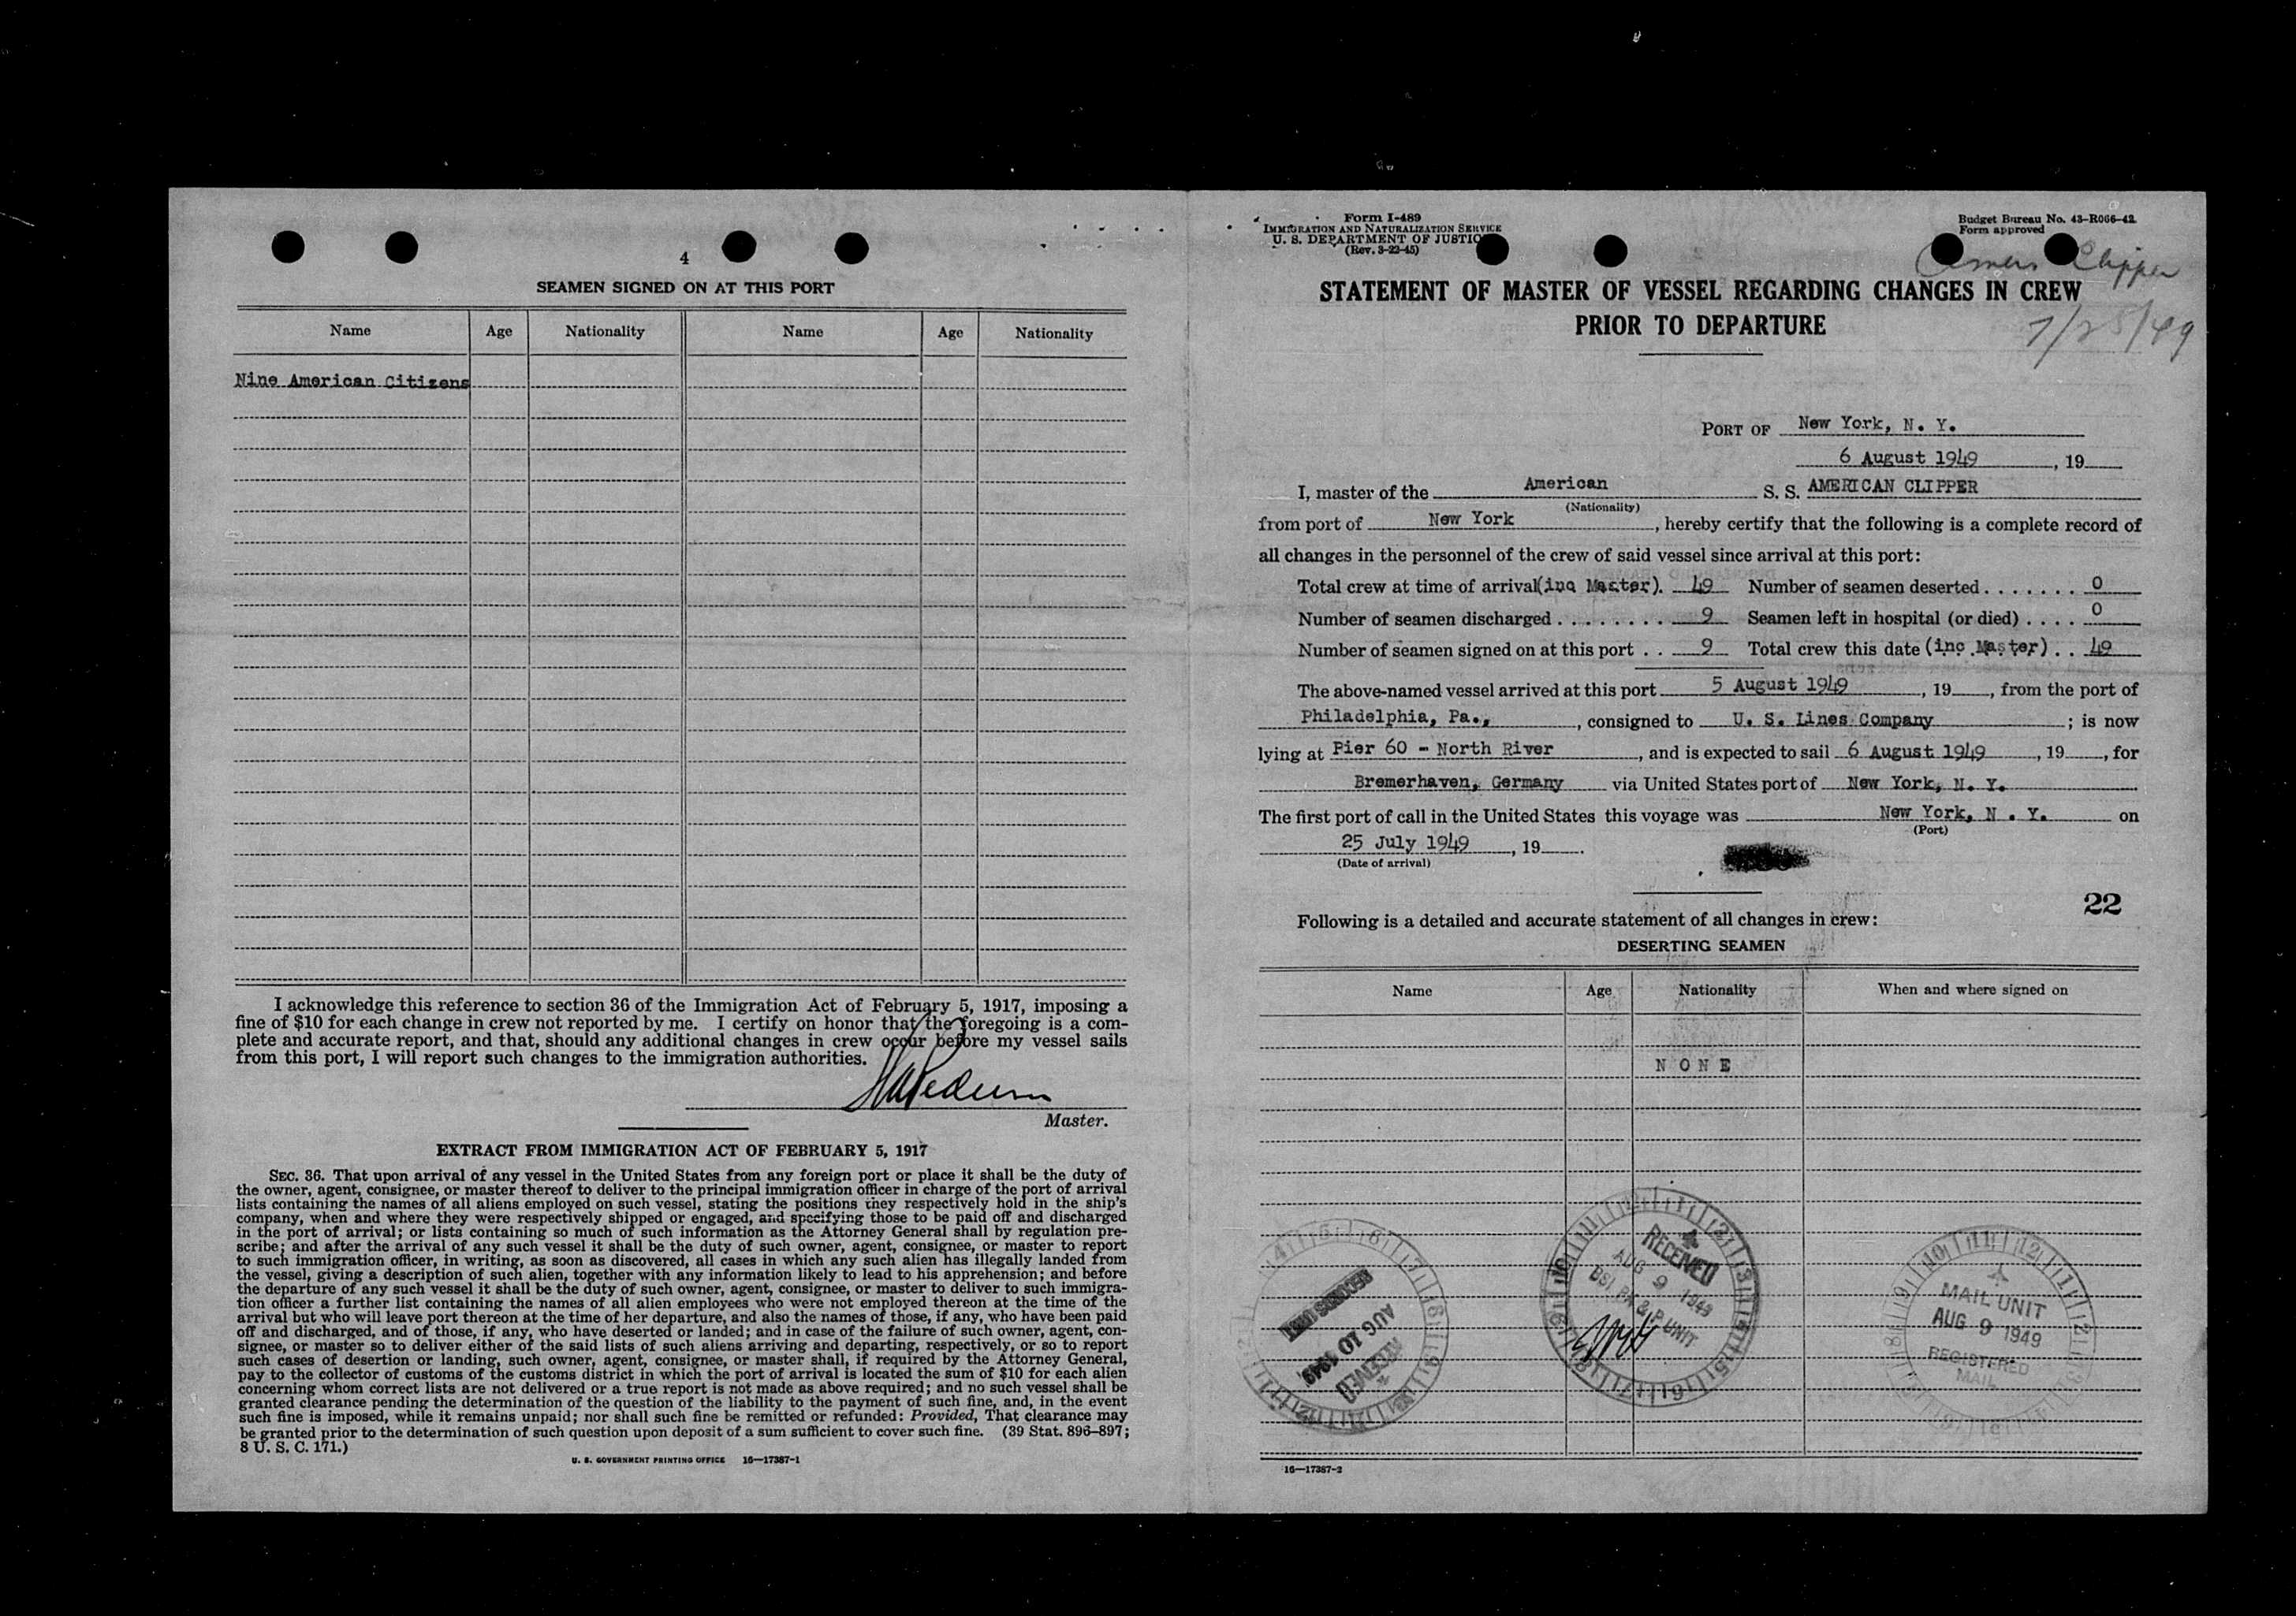 4
SEAMEN SIGNED ON AT THIS PORT
Name Age Nationality Name Age Nationality
Nine American Citizens
I acknowledge this reference to section 36 of the Immigration Act of February 5, 1917, imposing a
fine of $10 for each change in crew not reported by me. I certify on honor that the foregoing is a com-
plete and accurate report, and that, should any additional changes in crew occur before my vessel sails
from this port, I will report such changes to the immigration authorities.
Master.
EXTRACT FROM IMMIGRATION ACT OF FEBRUARY 5, 1917
SEC. 36. That upon arrival of any vessel in the United States from any foreign port or place it shall be the duty of
the owner, agent, consignee, or master thereof to deliver to the principal immigration officer in charge of the port of arrival
lists containing the names of all aliens employed on such vessel, stating the positions they respectively hold in the ship's
company, when and where they were respectively shipped or engaged, and specifying those to be paid off and discharged
in the port of arrival; or lists containing so much of such information as the Attorney General shall by regulation pre-
scribe; and after the arrival of any such vessel it shall be the duty of such owner, agent, consignee, or master to report
to such immigration officer, in writing, as soon as discovered, all cases in which any such alien has illegally landed from
the vessel, giving a description of such alien, together with any information likely to lead to his apprehension; and before
the departure of any such vessel it shall be the duty of such owner, agent, consignee, or master to deliver to such immigra-
tion officer a further list containing the names of all alien employees who were not employed thereon at the time of the
arrival but who will leave port thereon at the time of her departure, and also the names of those, if any, who have been paid
off and discharged, and of those, if any, who have deserted or landed; and in case of the failure of such owner, agent, con-
signee, or master so to deliver either of the said lists of such aliens arriving and departing, respectively, or so to report
such cases of desertion or landing, such owner, agent, consignee, or master shall, if required by the Attorney General,
pay to the collector of customs of the customs district in which the port of arrival is located the sum of $10 for each alien
concerning whom correct lists are not delivered or a true report is not made as above required; and no such vessel shall be
granted clearance pending the determination of the question of the liability to the payment of such fine, and, in the event
such fine is imposed, while it remains unpaid; nor shall such fine be remitted or refunded: Provided, That clearance may
be granted prior to the determination of such question upon deposit of a sum sufficient to cover such fine. (39 Stat. 896–897;
8 U. S. C. 171.)
U. S. GOVERNMENT PRINTING OFFICE 16—17387-1
Form I-489
IMMIGRATION AND NATURALIZATION SERVICE
U. S. DEPARTMENT OF JUSTIC
(Rev. 3-22-45)
Budget Bureau No. 43-R066-42
Form approved
Clipper
STATEMENT OF MASTER OF VESSEL REGARDING CHANGES IN CREW
PRIOR TO DEPARTURE
7/25/49
PORT OF New York, N. Y.
6 August 1949, 19
I, master of the American S. S. AMERICAN CLIPPER
(Nationality)
from port of New York, hereby certify that the following is a complete record of
all changes in the personnel of the crew of said vessel since arrival at this port:
Total crew at time of arrival(inc Master). 49 Number of seamen deserted . . . . . . . 0
Number of seamen discharged . . . . . . . . 9 Seamen left in hospital (or died) . . . . 0
Number of seamen signed on at this port . . 9 Total crew this date (inc Master) . . 49
The above-named vessel arrived at this port 5 August 1949, 19, from the port of
Philadelphia, Pa., , consigned to U. S. Lines Company; is now
lying at Pier 60 - North River, and is expected to sail 6 August 1949, 19, for
Bremerhaven, Germany via United States port of New York, N. Y.
The first port of call in the United States this voyage was New York, N . Y. on
(Port)
25 July 1949, 19.
(Date of arrival)
22
Following is a detailed and accurate statement of all changes in crew:
DESERTING SEAMEN
Name Age Nationality When and where signed on
N O N E
RECORDS UNIT
AUG 10 1949
RECEIVED
RECEIVED
AUG 9 1949
BSI PA & P UNIT
MAIL UNIT
AUG 9 1949
REGISTERED
MAIL
16—17387-2